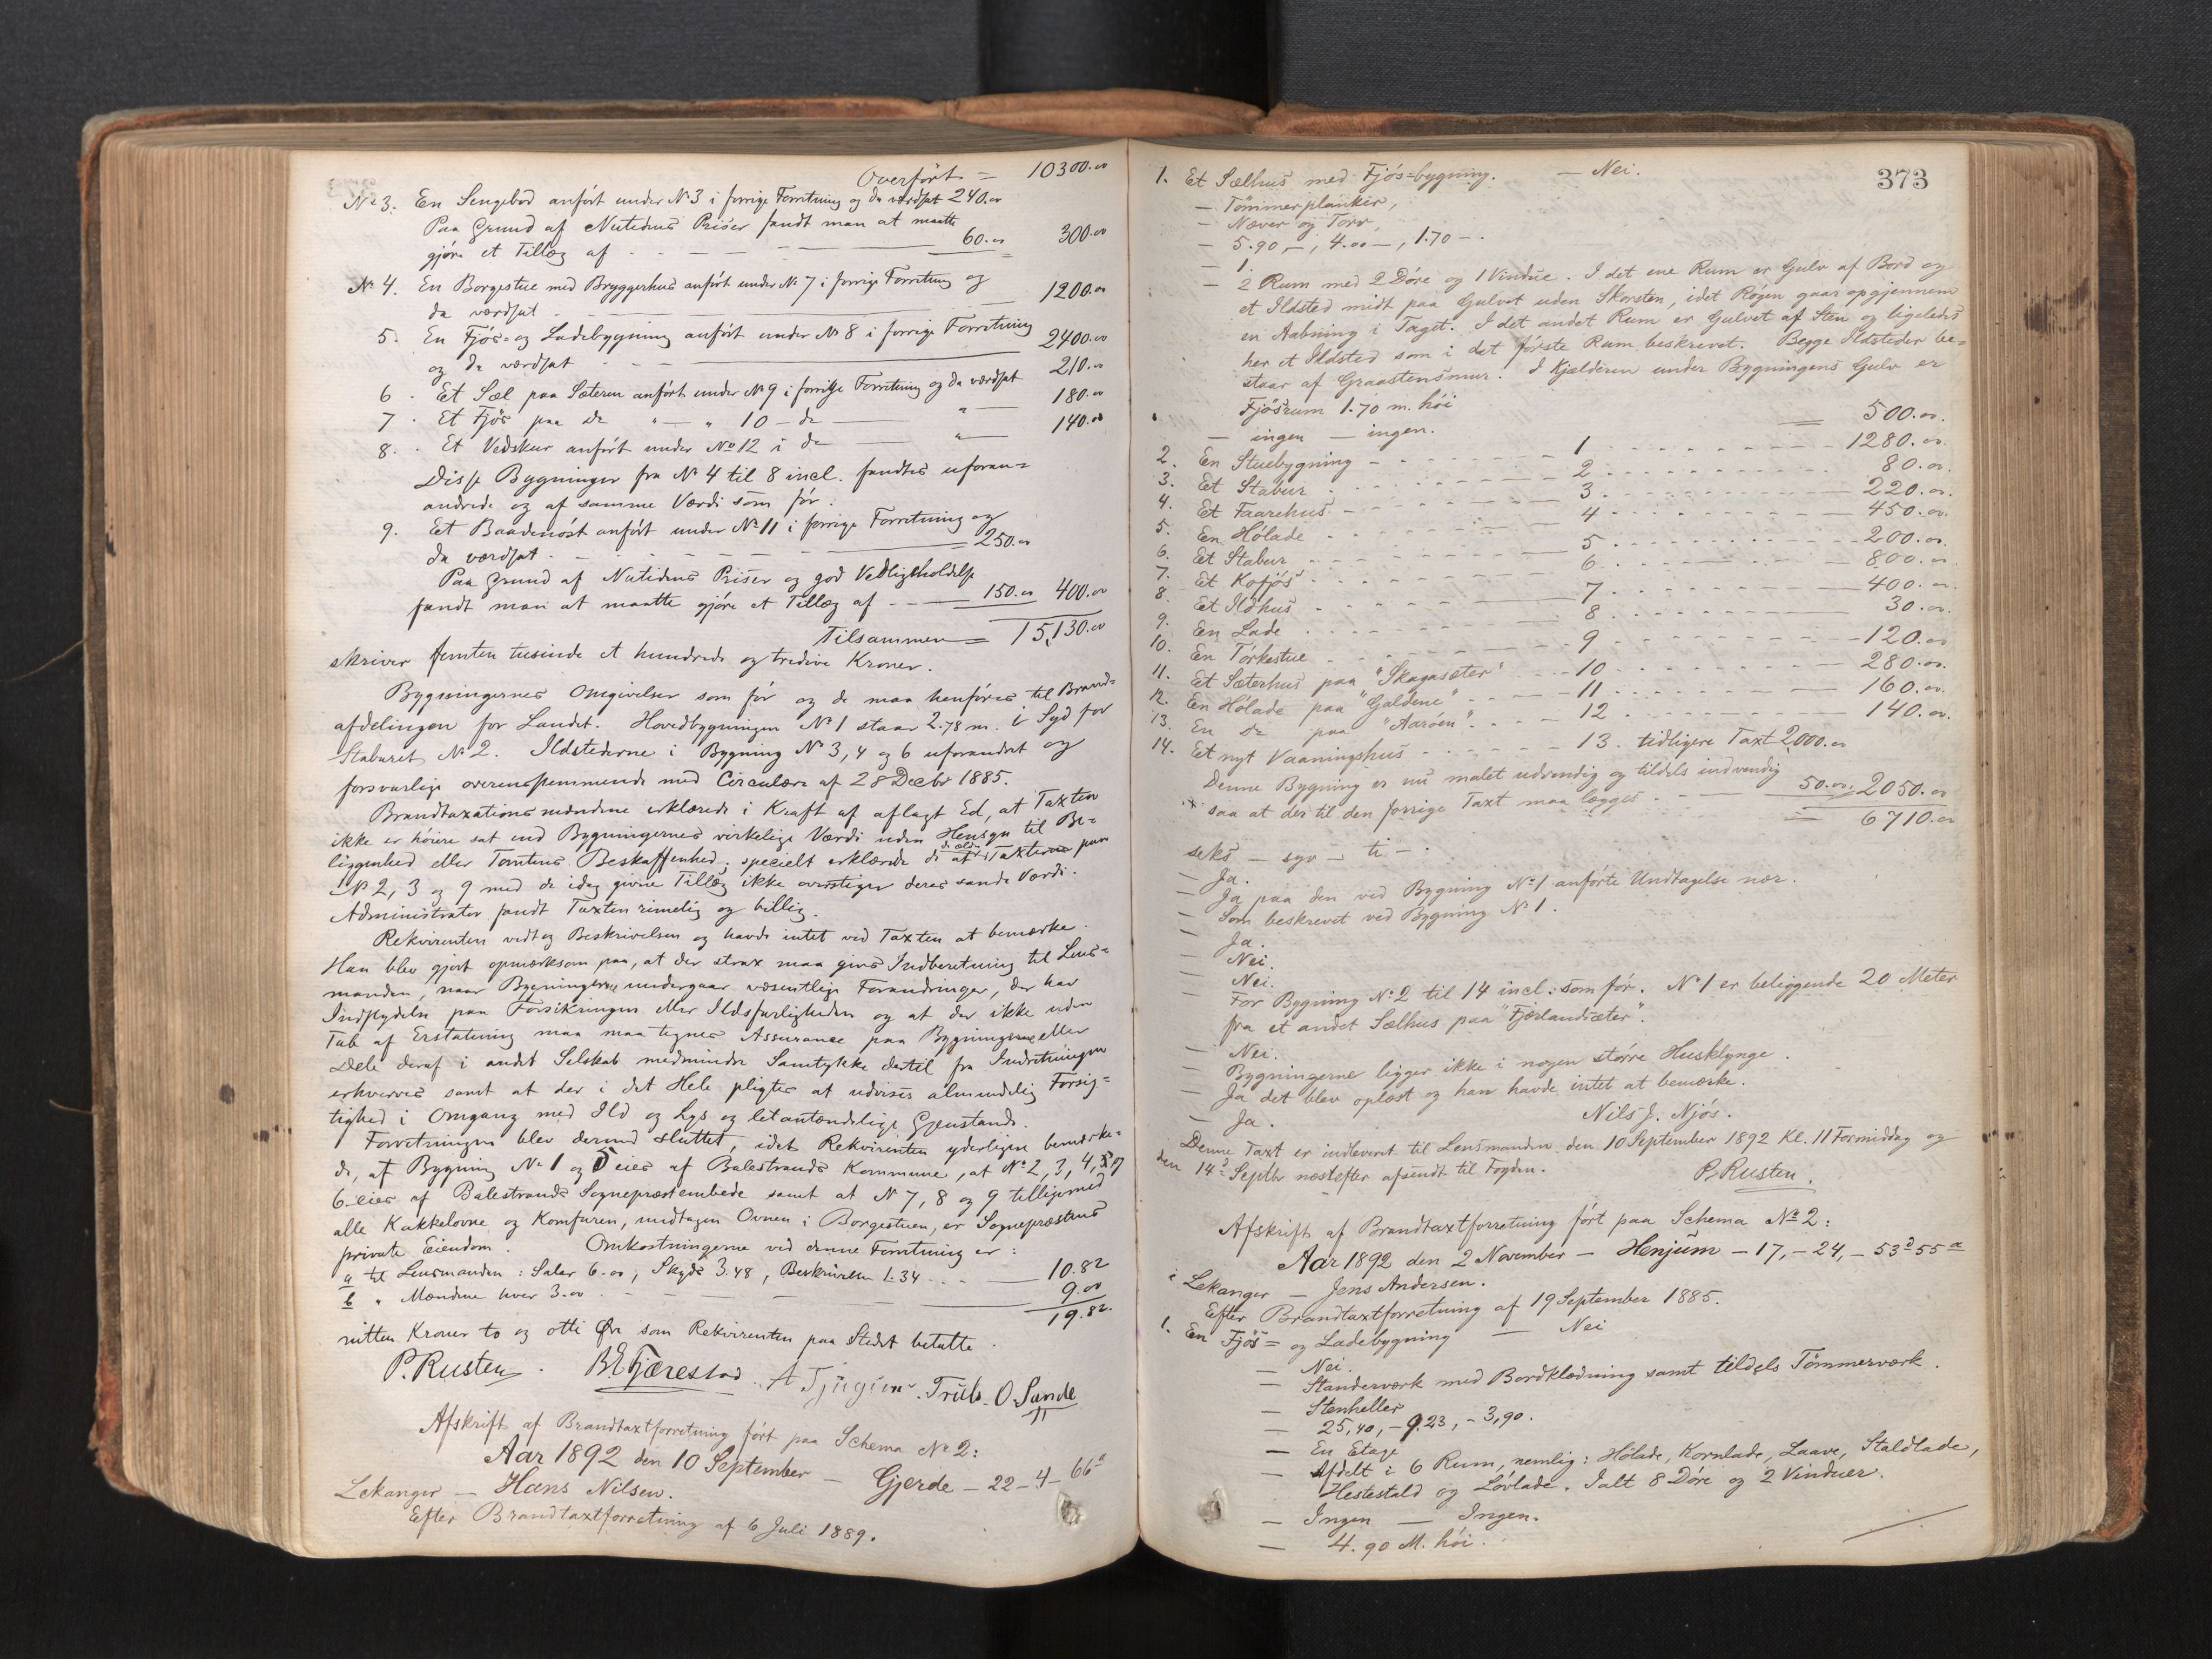 Overført = 10300.00
No 3. En Sengebod anført under No 3 i forrige Forretning og da værdsat 240.00
Paa Grund af Nutidens Priser fandt man at maatte
gjøre et Tillæg af - - - 60.00 300.00
No 4. En Borgestue med Bryggerhus anført under No 7 i forrige Forretning og
da værdsat - 1200.00
5. En Fjøs- og Ladebygning anført under No 8 i forrige Forretning
og da værdsat - - 2400.00
6. Et Sæl paa Sæteren anført under No 9 i forrige Forretning og da værdsat 210.00
7. Et Fjøs paa Do " — " 10 — do — " — 180.00
8. Et Vedskur anført under No 12 i do — " — 140.00
Disse Bygninger fra No 4 til 8 incl. fandtes uforan=
andrede og af samme Værdi som før.
9. Et Baadenøst anført under No 11 i forrige Forretning og
da værdsat - - - 250.00
Paa Grund af Nutidens Priser og god Vedligeholdelse
fandt man at maatte gjøre et Tillæg af - - 150.00 400.00
Tilsammen = 15,130.00
skriver femten tusinde et hundrede og tredive Kroner.
Bygningernes Omgivelser som før og de maa henføres til Brand=
afdelingen for Landet. Hovedbygningen No 1 staar 2.78 m. i Syd for
Staburet No 2. Ildstederne i Bygning No 3, 4 og 6 uforandret og
forsvarlige overensstemmende med Circulære af 28 Decbr 1885.
Brandtaxationsmændene erklærede i Kraft af aflagt Ed, at Taxten
ikke er høiere sat end Bygningernes virkelige Værdi uden Hensyn til Be=
liggenhed eller Tomtens Beskaffenhed; specielt erklærede de at de ældre Taxterne paa
No 2, 3 og 9 med de idag givne Tillæg ikke overstiger deres sande Værdi.
Administrator fandt Taxten rimelig og billig.
Rekvirenten vedtog Beskrivelsen og havde intet ved Taxten at bemærke.
Han blev gjort opmærksom paa, at der strax maa gives Indberetning til Lens=
manden, naar Bygningerne undergaar væsentlige Forandringer, der har
Indflydelse paa Forsikringen eller Ildsfarligheden og at der ikke uden
Tab af Erstatning maa maa tegnes Assurance paa Bygningerne eller
Dele deraf i andet Selskab medmindre Samtykke dertil fra Indretningen
erhverves samt at der i det Hele pligtes at udvises almindelig Forsig=
tighed i Omgang med Ild og Lys og letantændelige Gjenstande.
Forretningen blev dermed sluttet, idet Rekvirenten yderligere bemærke=
de, at Bygning No 1 og 5 eies af Balestrands Kommune, at No 2, 3, 4, og
6 eies af Balestrands Sognepræstembede samt at No 7, 8 og 9 tilligemed
alle Kakkelovne og Komfuren, undtagen Ovnen i Borgestuen, er Sognepræstens
private Eiendom. Omkostningerne ved denne Forretning er:
a til Lensmanden: Salær 6.00, Skyds 3.48, Beskrivelsen 1.34 - - - 10.82
b " Mændene hver 3.00 - - - 9.00
19.82.
nitten Kroner to og otti Øre som Rekvirenten paa Stedet betalte.
P. Rusten. B E Fjærestad. Truls. O. Sande
Afskrift af Brandtaxtforretning ført paa Schema No 2:
Aar 1892 den 10 September — Gjerde — 22 — 4 — 66a
Lekanger — Hans Nilsen.
Efter Brandtaxtforretning af 6 Juli 1889.
373
1. Et Sælhus med Fjøs=bygning. — Nei.
— Tømmerplanker,
— Næver og Torv,
— 5.90 —, 4.00 —, 1.70 —.
— 1.
— 2 Rum med 2 Døre og 1 Vindue. I det ene Rum er Gulv af Bord og
et Ildsted midt paa Gulvet uden Skorsten, idet Røgen gaar opgjennem
en Aabning i Taget. I det andet Rum er Gulvet af Sten og ligeledes
her et Ildsted som i det første Rum beskrevet. Begge Ildsteder be=
staar af Graastensmur. I Kjælderen under Bygningens Gulv er
Fjøsrum 1.70 m. høi
— ingen — ingen. = 500.00.
2. En Stuebygning - - - 1 - - - 1280.00.
3. Et Stabur - - - 2 - - - 80.00.
4. Et Faarehus - - - 3 - - - 220.00.
5. En Hølade - - - 4 - - - 450.00.
6. Et Stabur - - - 5 - - - 200.00.
7. Et Kofjøs - - - 6 - - - 800.00
8. Et Ildhus - - - 7 - - - 400.00
9. En Lade - - - 8 - - - 30.00.
10. En Tørkestue - - - 9 - - - 120.00
11. Et Sæterhus paa "Skagasæter" - - 10 - - - 280.00.
12. En Hølade paa "Galdene" - - 11 - - - 160.00.
13. En Do paa "Aarøen" - - 12 - - - 140.00.
14. Et nyt Vaaningshus - - - 13. tidligere Taxt 2,000.00
Denne Bygning er nu malet udvendig og tildels indvendig
saa at der til den forrige Taxt maa lægges - - 50.00. 2050.00
= 6710.00
seks — syv — ti —.
— Ja.
— Ja paa den ved Bygning No 1 anførte Undtagelse nær.
— Som beskrevet ved Bygning No 1.
— Ja.
— Nei.
— Nei.
— For Bygning No 2 til 14 incl: som før. No 1 er beliggende 20 Meter
fra et andet Sælhus paa "Fjærlandsæter".
— Nei.
— Bygningerne ligger ikke i nogen større Husklynge.
— Ja det blev oplæst og han havde intet at bemærke.
— Ja. Nils J. Njøs.
Denne Taxt er indleveret til Lensmanden den 10 September 1892 Kl. 11 Formiddag og
den 14de Septbr næstefter afsendt til Fogden.
P. Rusten.
Afskrift af Brandtaxtforretning ført paa Schema No 2:
Aar 1892 den 2 November — Henjum — 17, — 24, — 53d 55a
i Lekanger — Jens Andersen.
Efter Brandtaxtforretning af 19 September 1885.
1. En Fjøs= og Ladebygning — Nei
— Nei.
— Standerværk med Bordklædning samt tildels Tømmerværk.
— Stenheller
— 25,40, — 9.23, — 3,90.
— En Etage
— Afdelt i 6 Rum, nemlig: Hølade, Kornlade, Laave, Staldlade,
Hestestald og Løvlade. Ialt 8 Døre og 2 Vinduer.
— Ingen — Ingen.
— 4.90 M. høi.